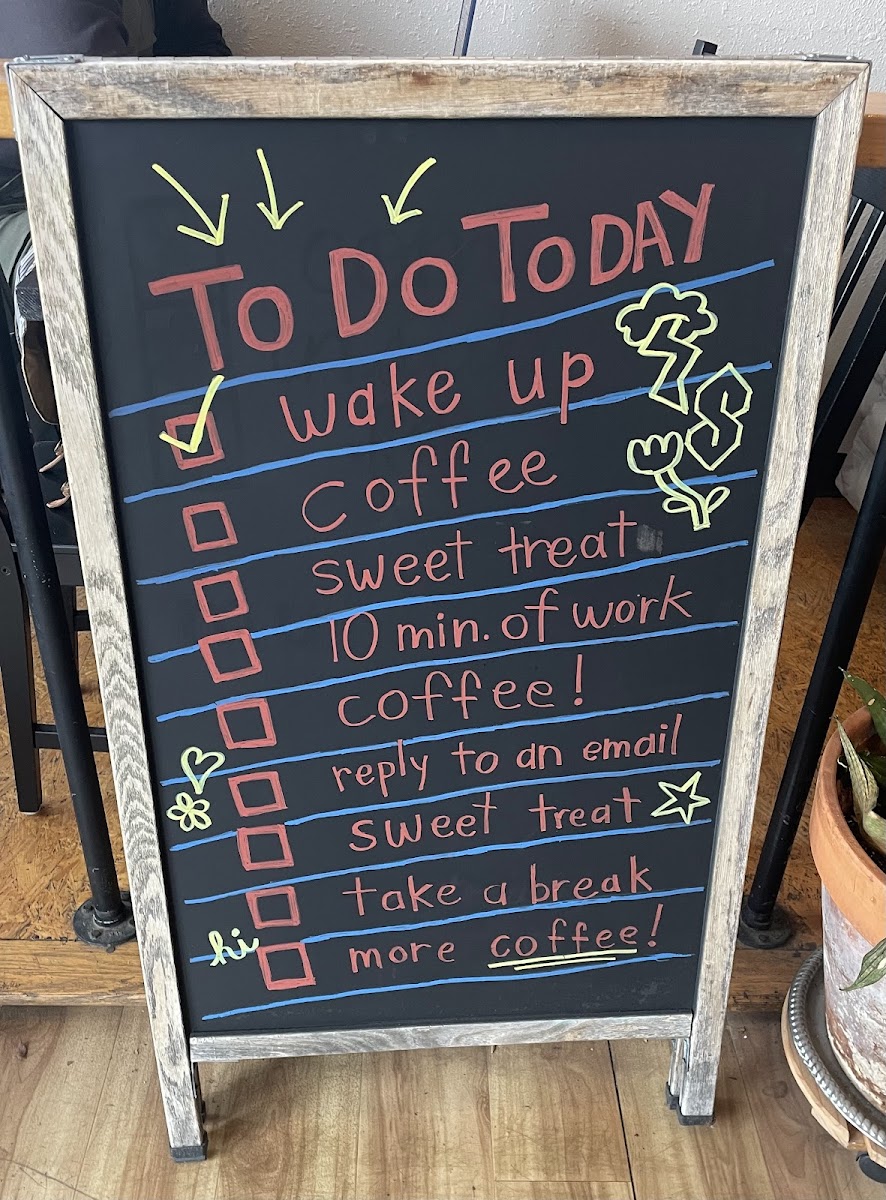 To Do ToDAY
wake up
S
coffee
sweet treat
10 min. of work
coffee!
reply to an email
sweet treat
take a break
hi
more coffee!